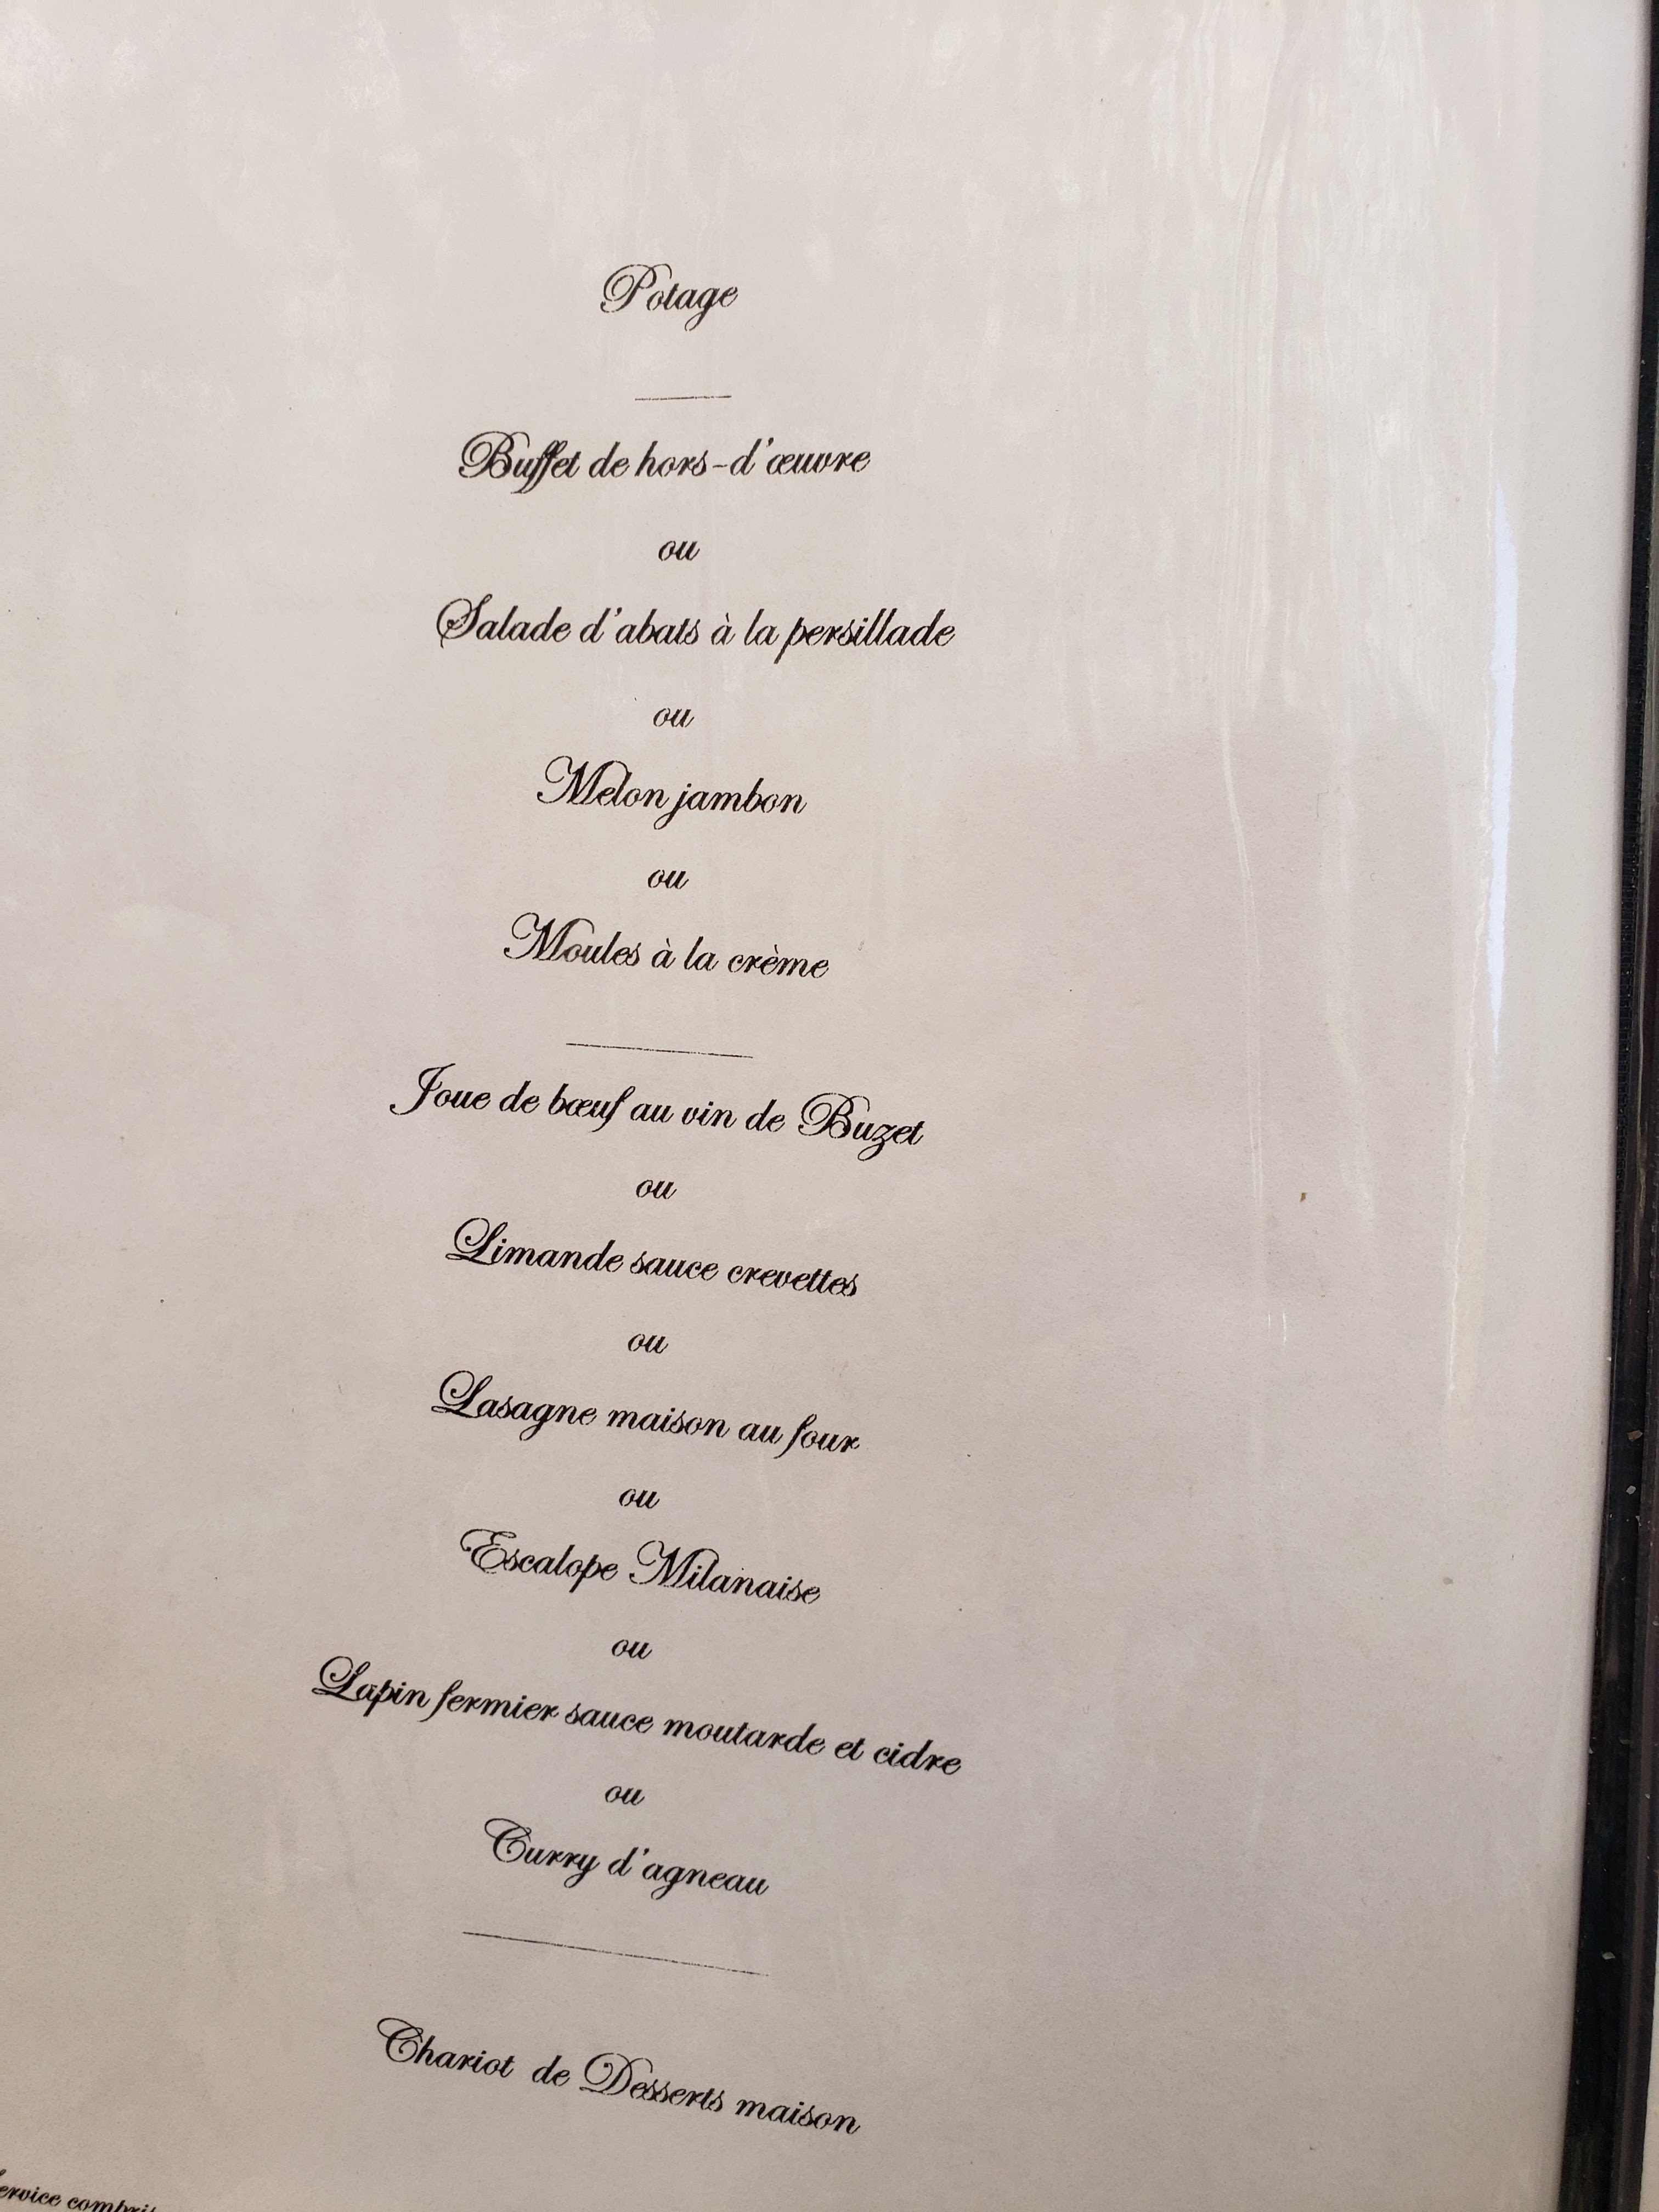 Potage
Buffet de hors-d'œuvre
ou
Salade d'abats à la persillade
ou
Melon jambon
ou
Moules à la crème
Joue de bœuf au vin de Buzet
ou
Limande sauce crevettes
ou
Lasagne maison au four
ou
Escalope Milanaise
ou
Lapin fermier sauce moutarde et cidre
ou
Curry d'agneau
Chariot de Desserts maison